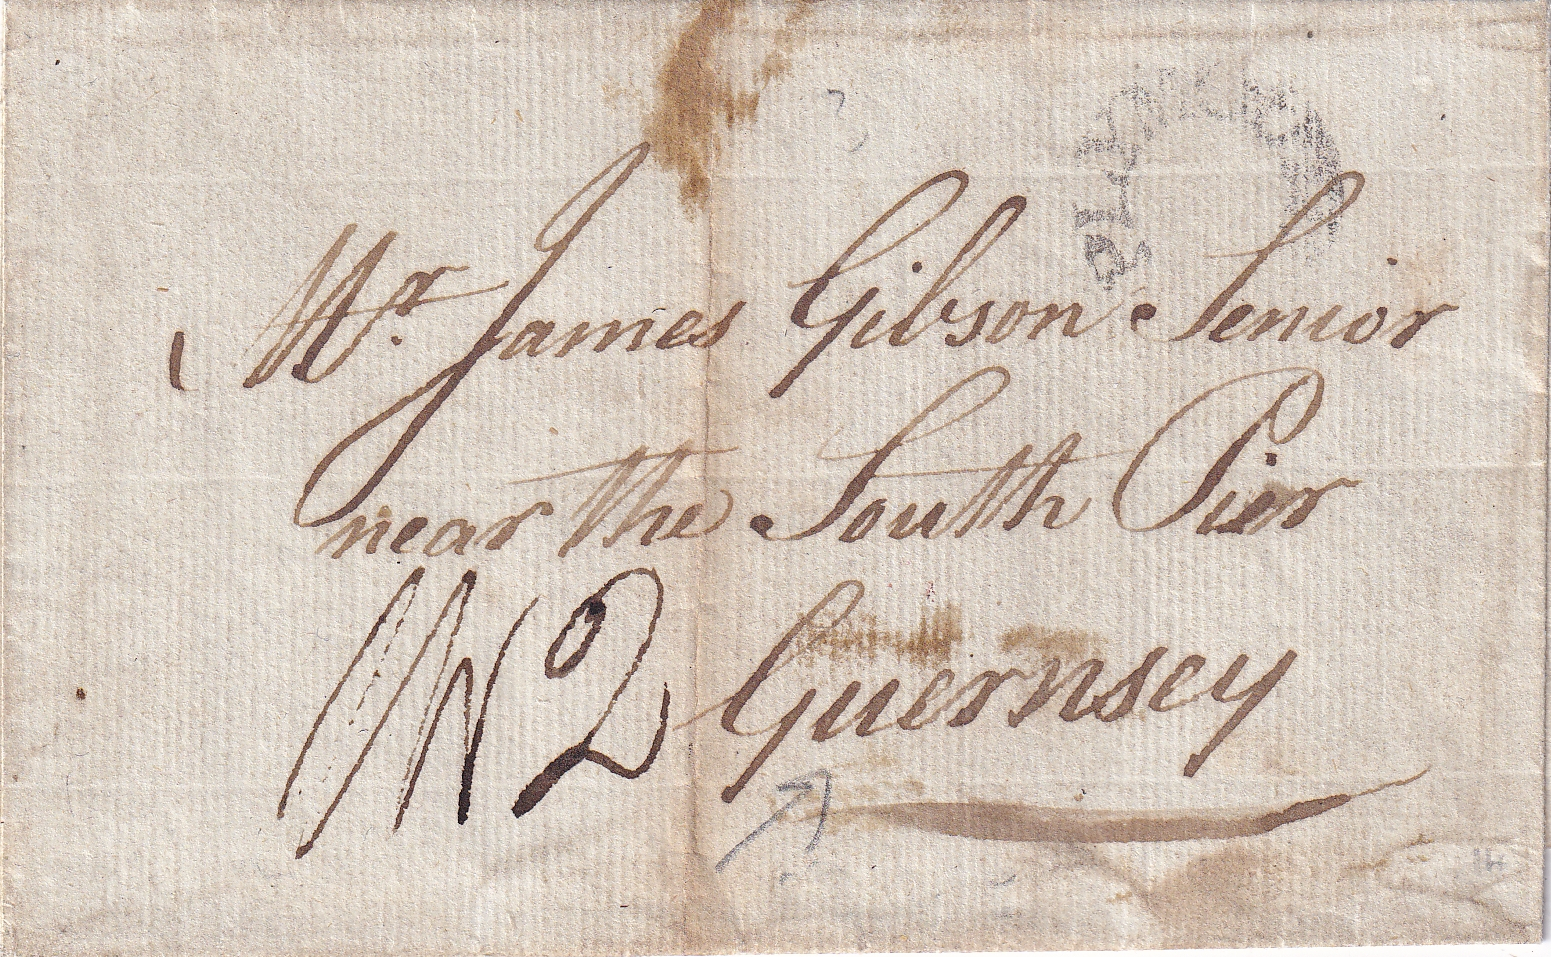 PLYMOUTH
Mr. James Gibson Senior
near the South Pier
Guernsey